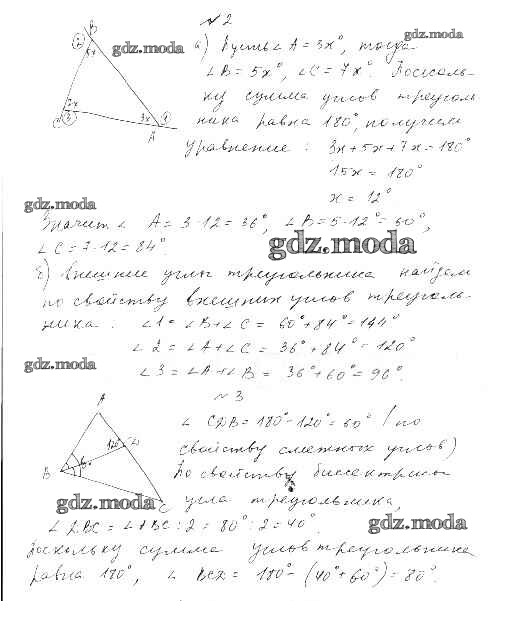 №2
а) Пусть ∠A = 3x°, тогда
∠B = 5x°, ∠C = 7x°. Посколь-
ку сумма углов треуголь
ника равна 180°, получим
уравнение: 3x+5x+7x=180°
15x = 180°
x = 12°
Значит ∠ A = 3·12=36°, ∠B=5·12°=60°,
∠C=7·12=84°.
б) Внешние углы треугольника найдем
по свойству внешних углов треуголь-
ника: ∠1=∠B+∠C = 60°+84°=144°
∠2 = ∠A+∠C = 36°+84°=120°
∠3 = ∠A+∠B = 36°+60°=96°.
№3
∠ CDB=180°-120°=60° (по
свойству смежных углов)
По свойству биссектрисы
угла треугольника,
∠DBC=∠ABC:2=80°:2=40°.
Поскольку сумма углов треугольника
равна 180°, ∠ BCD= 180°-(40°+60°)=80°.
B
2
5x
7x
C
3
3x
1
A
A
120°
D
B
C
gdz.moda
gdz.moda
gdz.moda
gdz.moda
gdz.moda
gdz.moda
gdz.moda